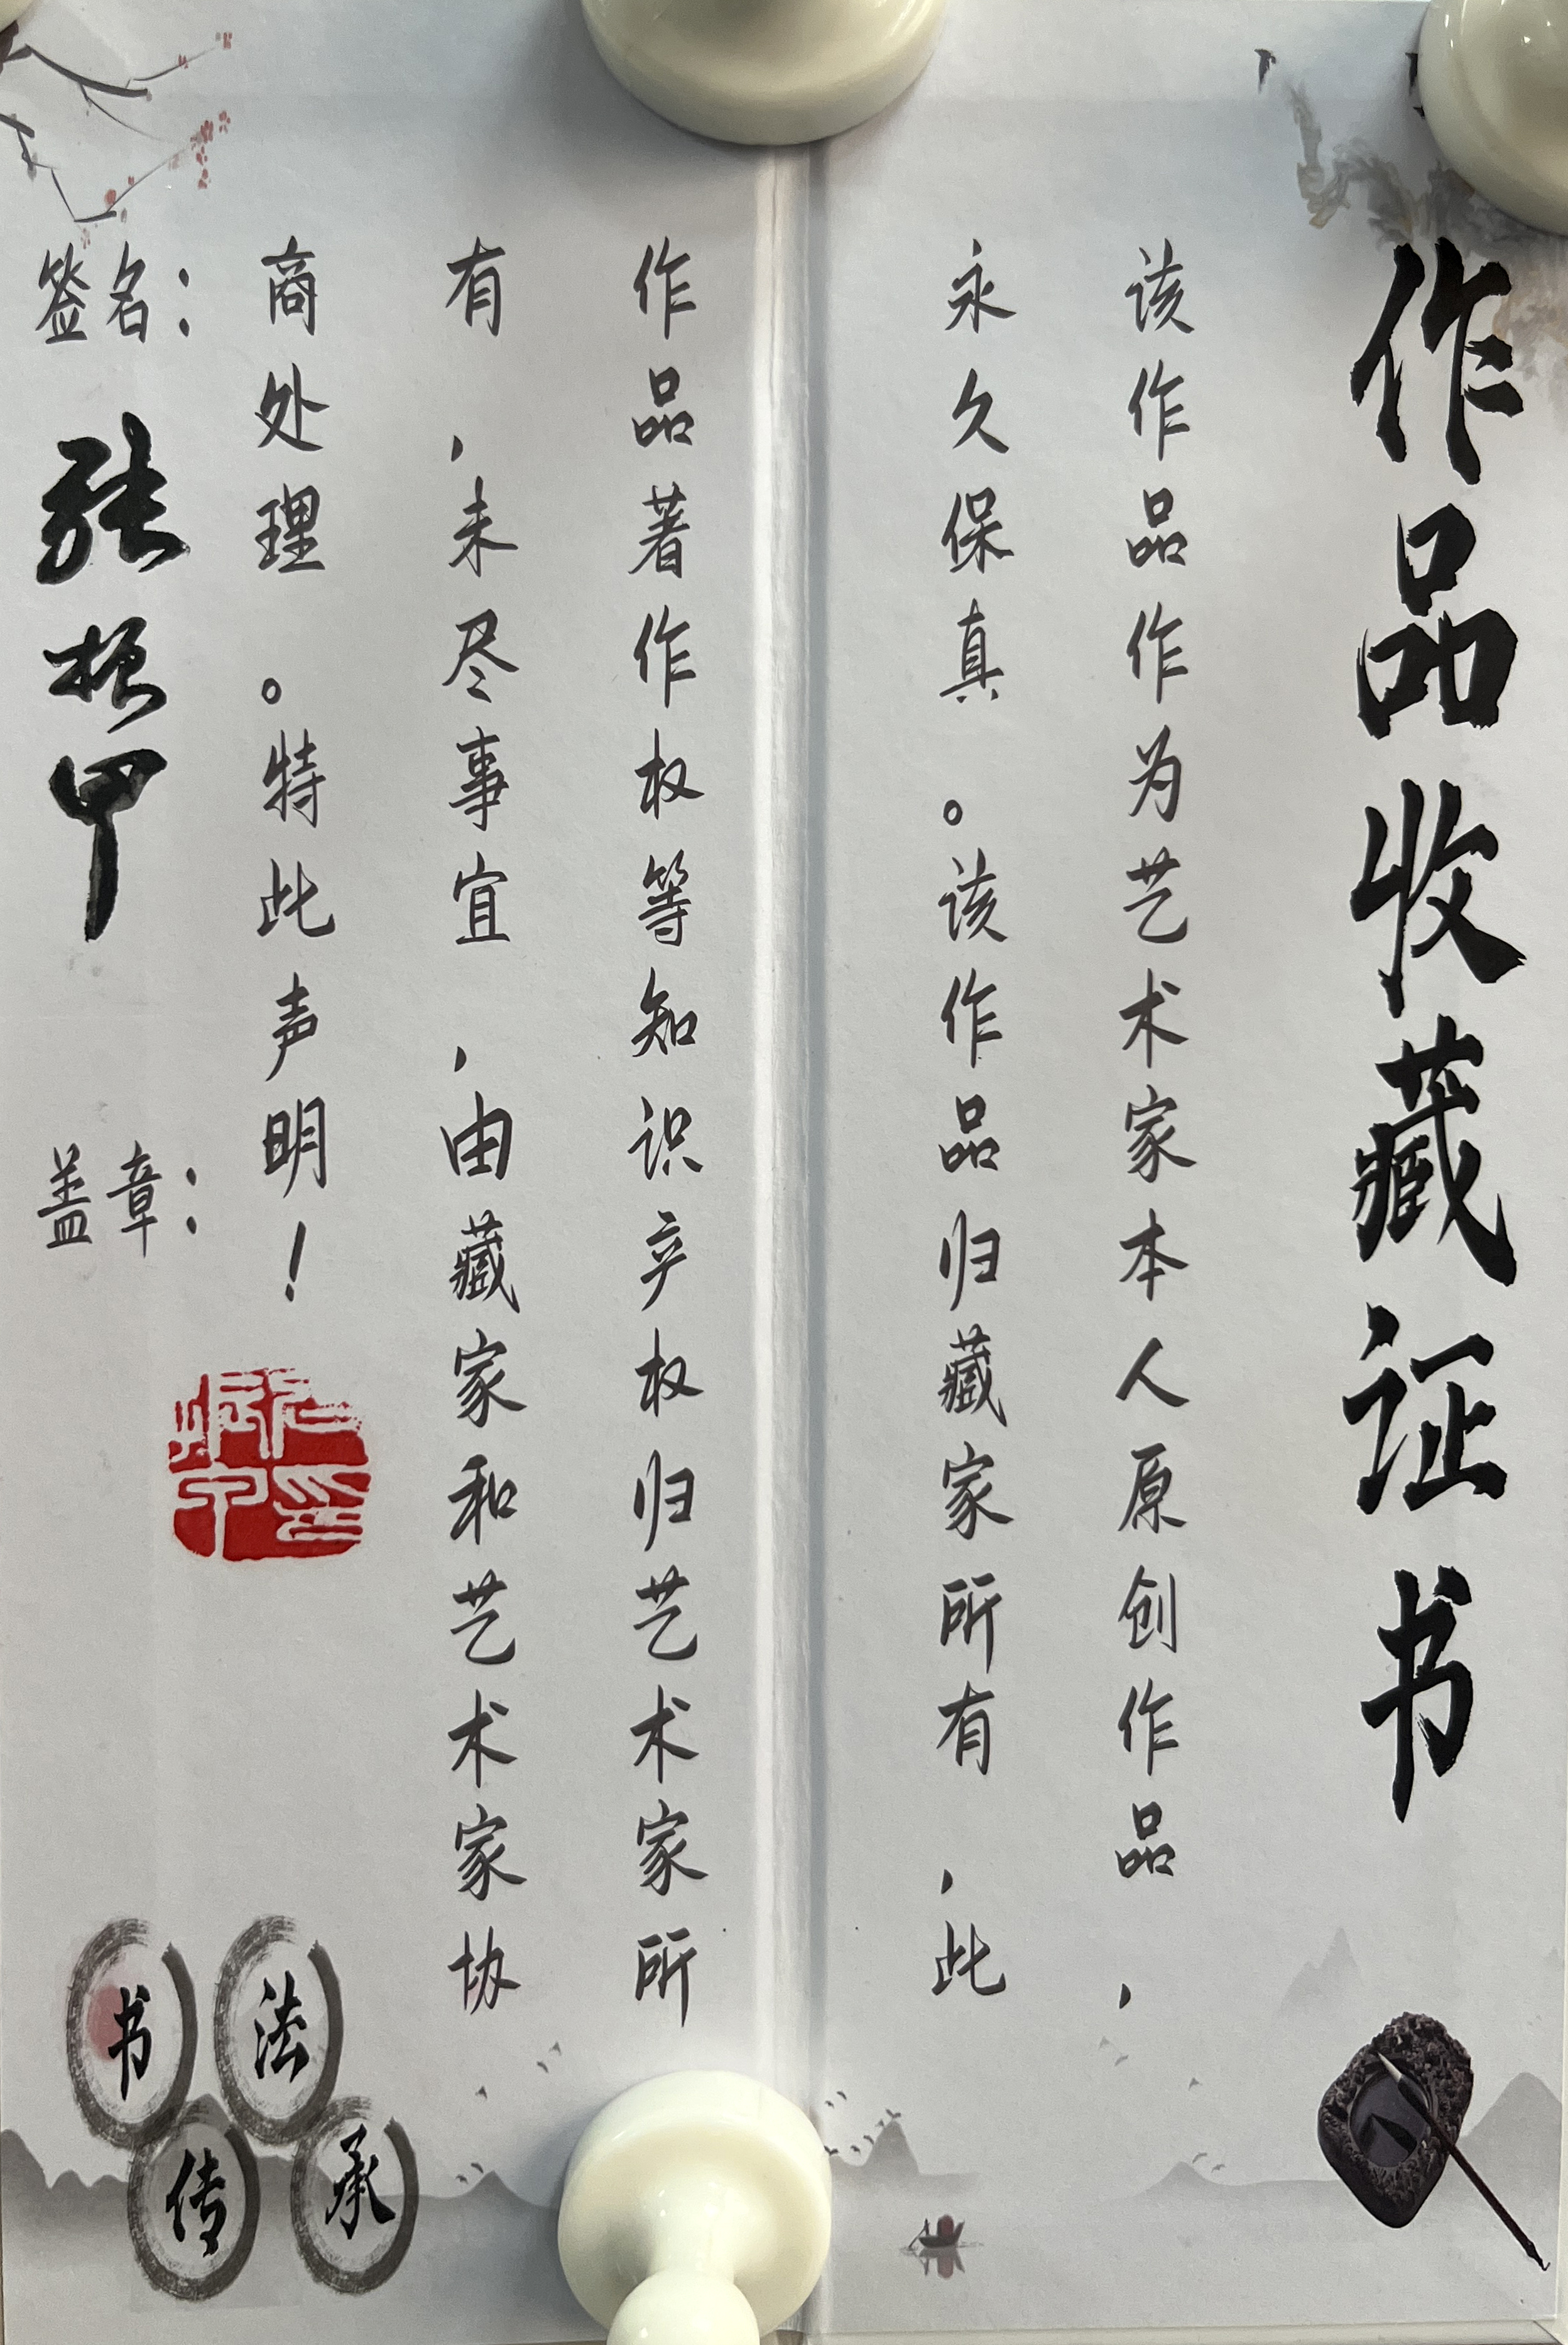 作品收藏证书
该作品作为艺术家本人原创作品，
永久保真。该作品归藏家所有，此
作品著作权等知识产权归艺术家所
有，未尽事宜，由藏家和艺术家协
商处理。特此声明！
签名：
张振甲
盖章：
书法
传承